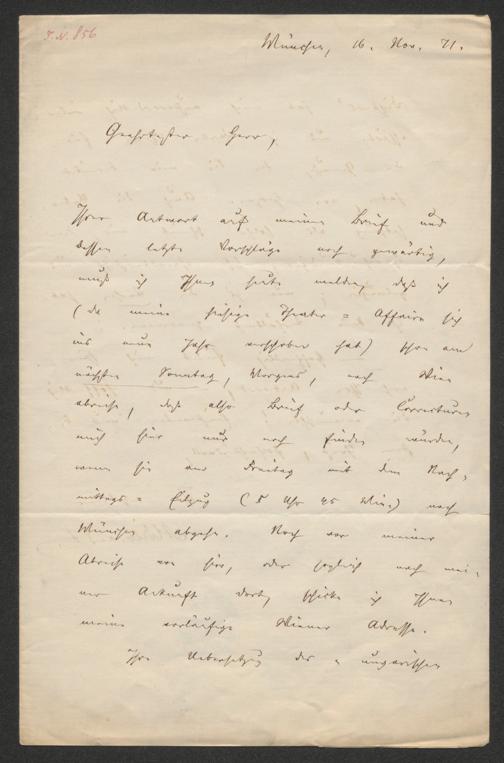 I.N. 856
München, 16. Nov. 71.
Geehrtester Herr,
Ihrer Antwort auf meinen Brief und
dessen letzte Vorschläge noch gewärtig,
muß ich Ihnen heute melden, daß ich
(da meine hiesige Theater = Affaire sich
ins neue Jahr verschoben hat) schon am
nächsten Sonntag, Morgens, nach Wien
abreise, daß also Brief oder Correcturen
mich hier nur noch finden würden,
wenn sie am Freitag mit dem Nach-
mittags = Eilzug (5 Uhr 45 Min) nach
München abgehn. Noch vor meiner
Abreise von hier, oder sogleich nach mei-
ner Ankunft dort, schicke ich Ihnen
meine vorläufige Wiener Adresse.
Ihre Uebersetzung der „ungarischen